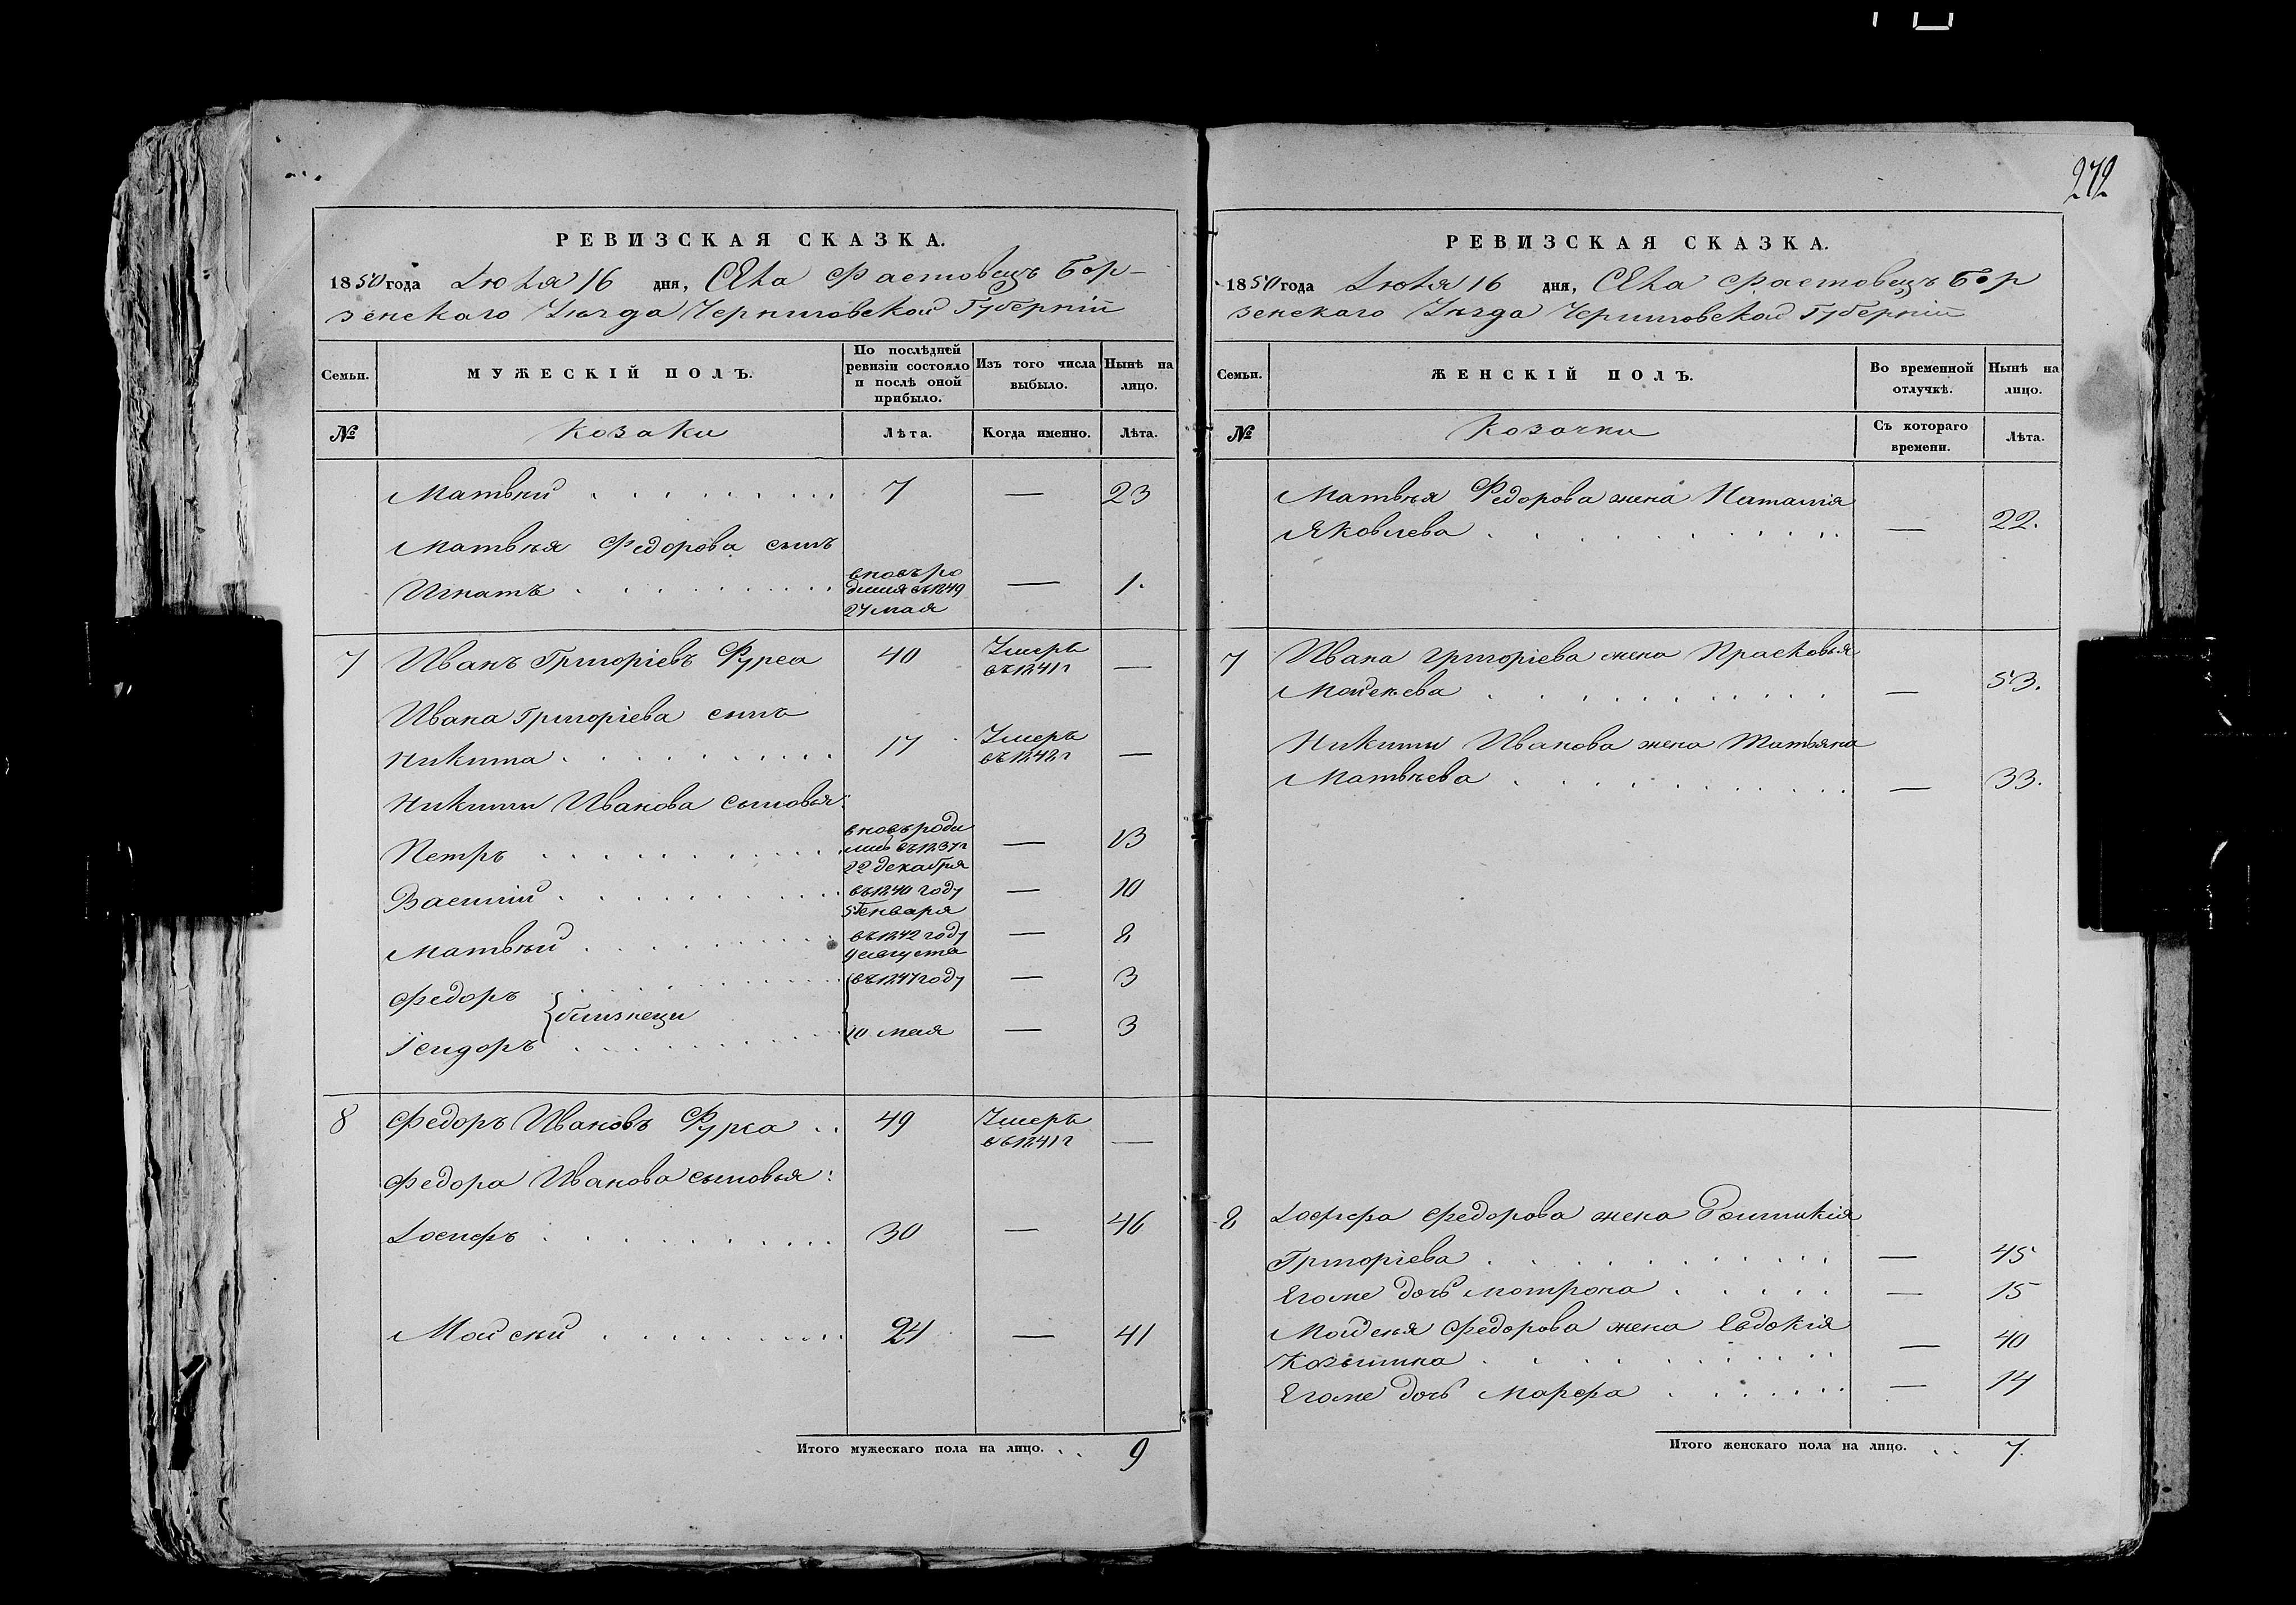 272
РЕВИЗСКАЯ СКАЗКА.
1850 года Іюля 16 дня, Села Фастовецъ Бор-
зенскаго Уѣзда Черниговской Губерніи
Семьи.
МУЖЕСКІЙ ПОЛЪ.
По послѣдней ревизіи состояло и послѣ оной прибыло.
Изъ того числа выбыло.
Нынѣ на лицо.
№ Козаки Лѣта. Когда именно. Лѣта.
Матвѣй 7 — 23
Матвѣя Федорова сынъ
Игнатъ вновь ро
дился въ 1849 — 1.
27 мая
7 Иванъ Григоріевъ Фурса 40 Умеръ
въ 1841 г —
Ивана Григоріева сынъ
Никита 17 Умеръ
въ 1848 г —
Никиты Иванова сыновья:
Петръ вновь роди
лись въ 1837 г — 13
22 декабря
Василій въ 1840 году — 10
5 Генваря
Матвѣй въ 1842 году — 8
9 августа
Федоръ въ 1847 году — 3
близнецы
Ісидоръ 10 мая — 3
8 Федоръ Ивановъ Фурса 49 Умеръ
въ 1841 г —
Федора Иванова сыновья:
Іосифъ 30 — 46
Мойсей 24 — 41
Итого мужескаго пола на лицо. 9
РЕВИЗСКАЯ СКАЗКА.
1850 года Іюля 16 дня, Села Фастовецъ Бор
зенскаго Уѣзда Черниговской Губерніи
Семьи.
ЖЕНСКІЙ ПОЛЪ.
Во временной отлучкѣ.
Нынѣ на лицо.
№ Козачки Съ котораго времени. Лѣта.
Матвѣя Федорова жена Наталія
Яковлева — 22.
7 Ивана Григоріева жена Прасковья
Мойсеева — 53.
Никиты Иванова жена Татьяна
Матвѣева — 33.
8 Іосифа Федорова жена
Григоріева — 45
Его же дочь Мотрона — 15
Мойсея Федорова жена Евдокія
Козьмина — 40
Его же дочь Марфа — 14
Итого женскаго пола на лицо. 7.